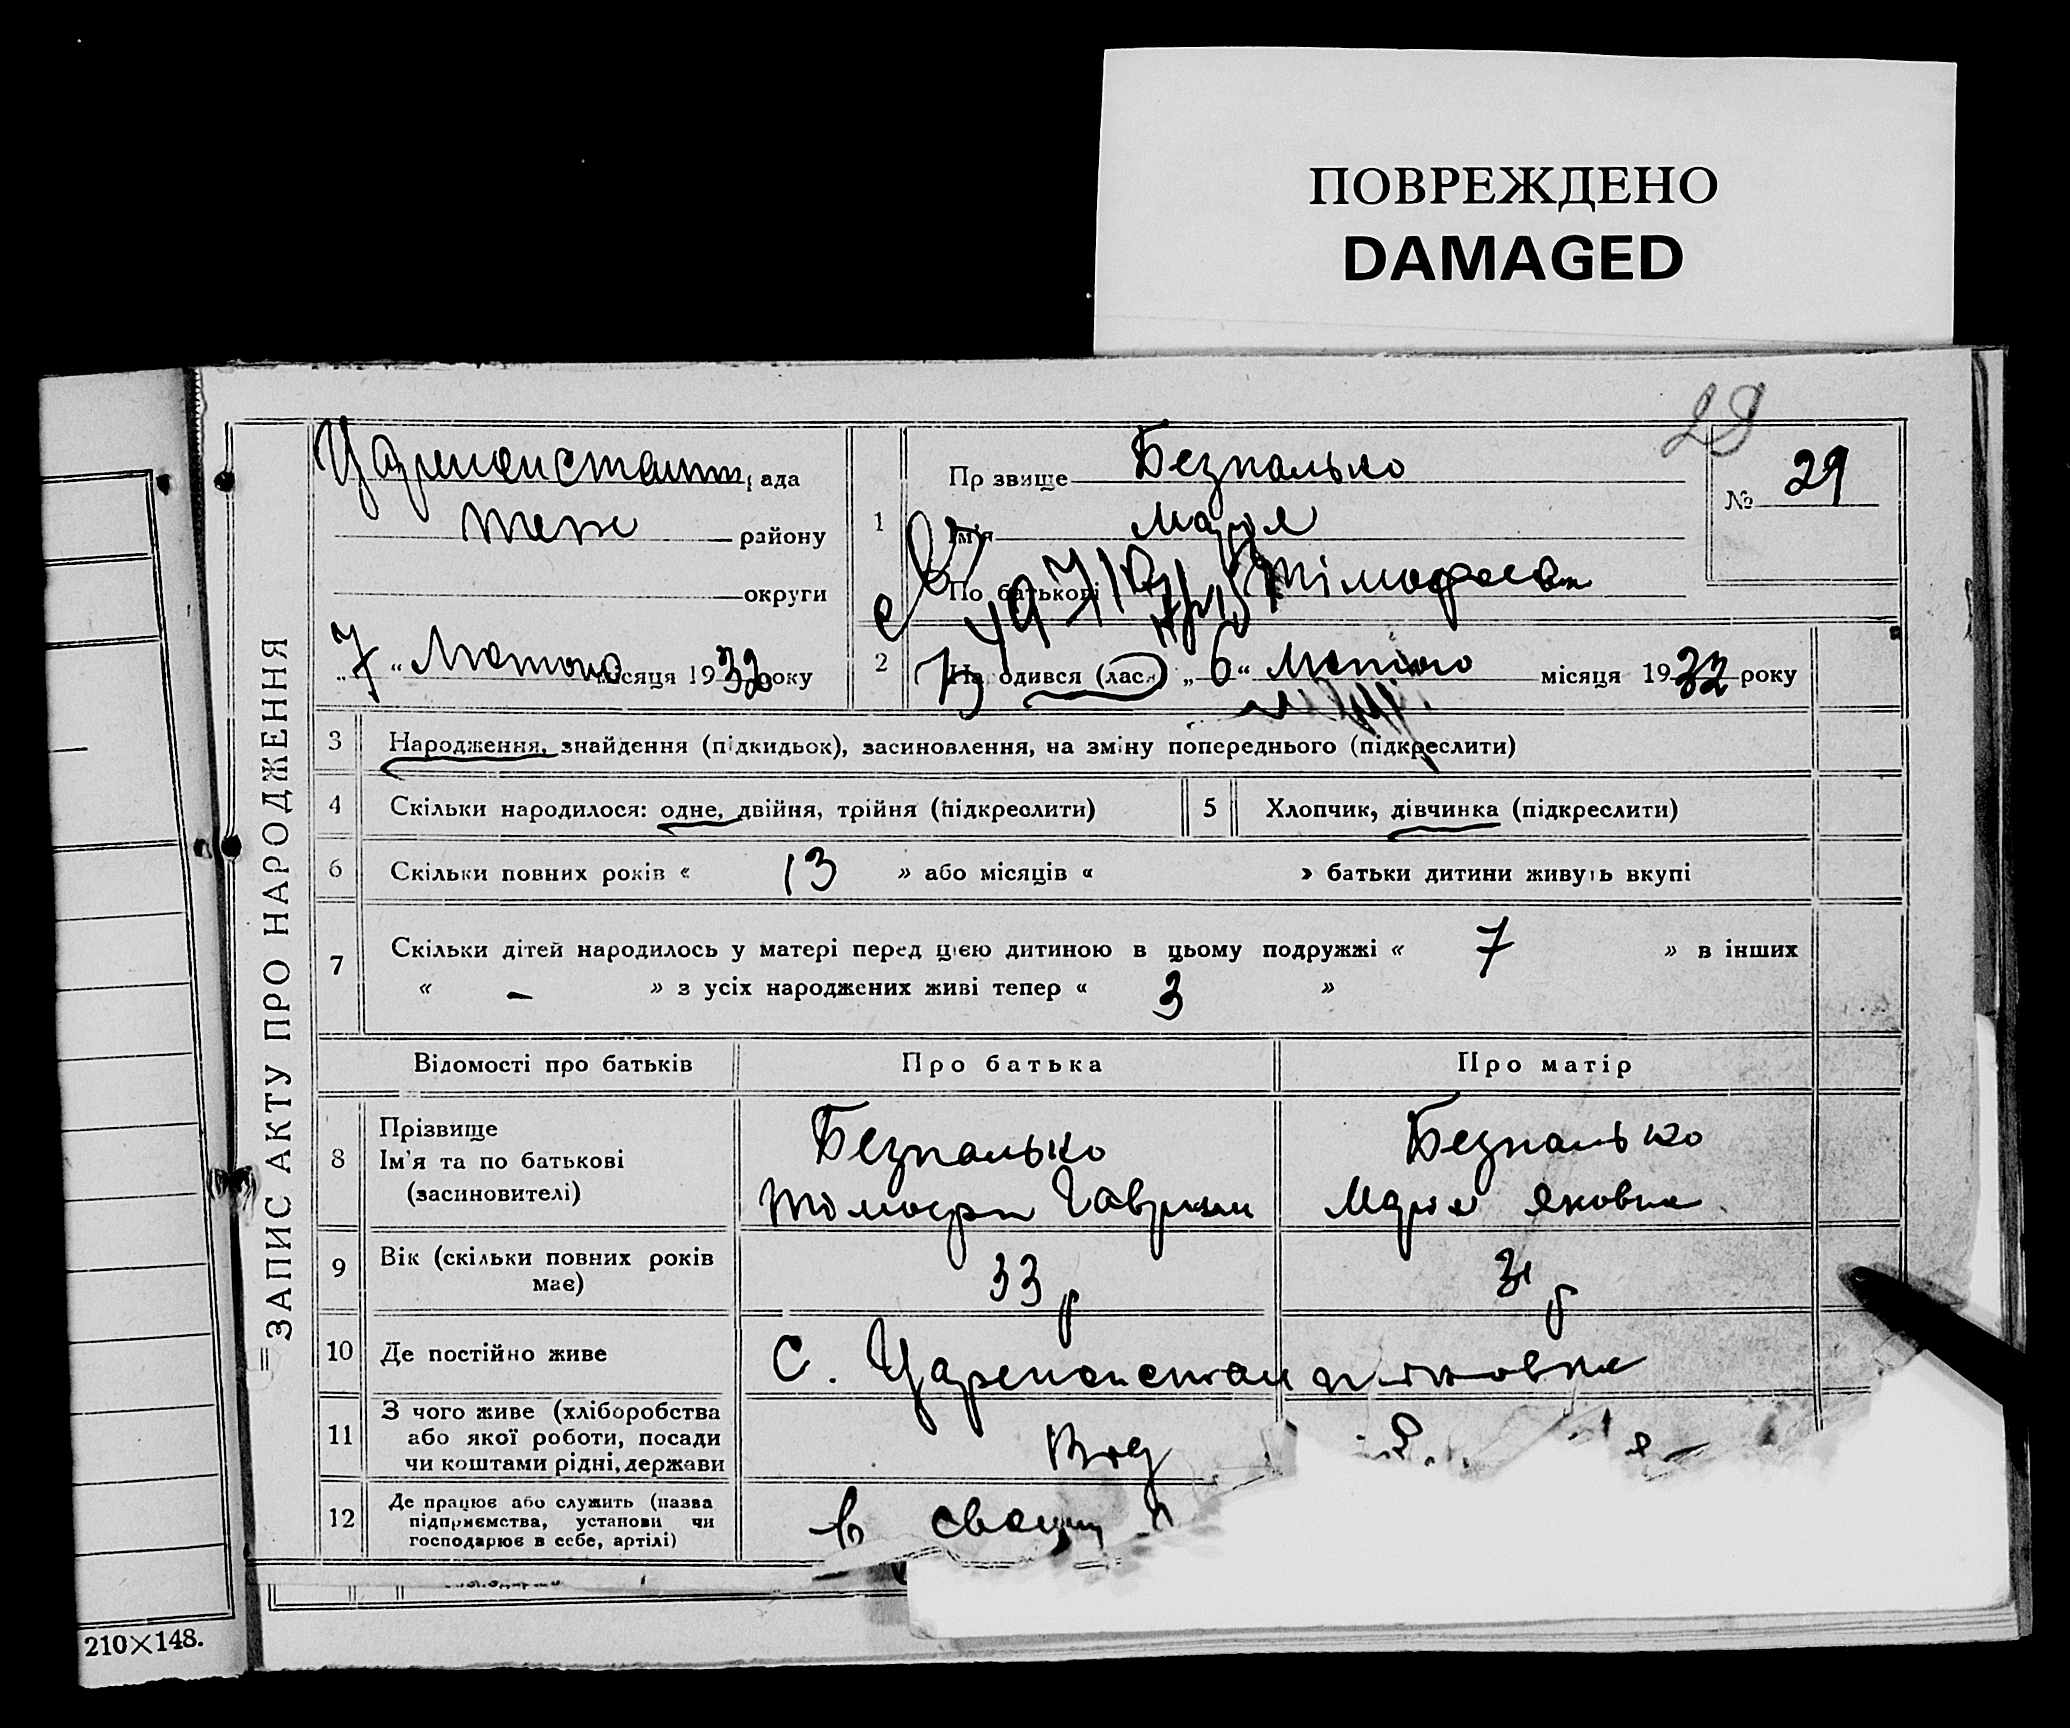 ПОВРЕЖДЕНО
DAMAGED
29
ЗАПИС АКТУ ПРО НАРОДЖЕННЯ
Цареконстант рада
теж району
округи
„7“ Лютого місяця 1932 року
1 Прізвище Безпалько
Ім'я Марія
По батькові Тімофеевн
№ 29
2 Народився (лася) „6“ Лютого місяця 1932 року
3 Народження, знайдення (підкидьок), засиновлення, на зміну попереднього (підкреслити)
4 Скільки народилося: одне, двійня, трійня (підкреслити) 5 Хлопчик, дівчинка (підкреслити)
6 Скільки повних років « 13 » або місяців « » батьки дитини живуть вкупі
7 Скільки дітей народилось у матері перед цією дитиною в цьому подружжі « 7 » в інших
« – » з усіх народжених живі тепер « 3 »
Відомості про батьків Про батька Про матір
8 Прізвище
Ім'я та по батькові
(засиновителі)
Безпалько
Тімофи Гаврил
Безпалько
Марія Яковна
9 Вік (скільки повних років
має)
33 р
31 р
10 Де постійно живе С. Цареконстантиновка
11 З чого живе (хліборобства
або якої роботи, посади
чи коштами рідні, держави
12 Де працює або служить (назва
підприємства, установи чи
господарює в себе, артілі)
в своему
210×148.